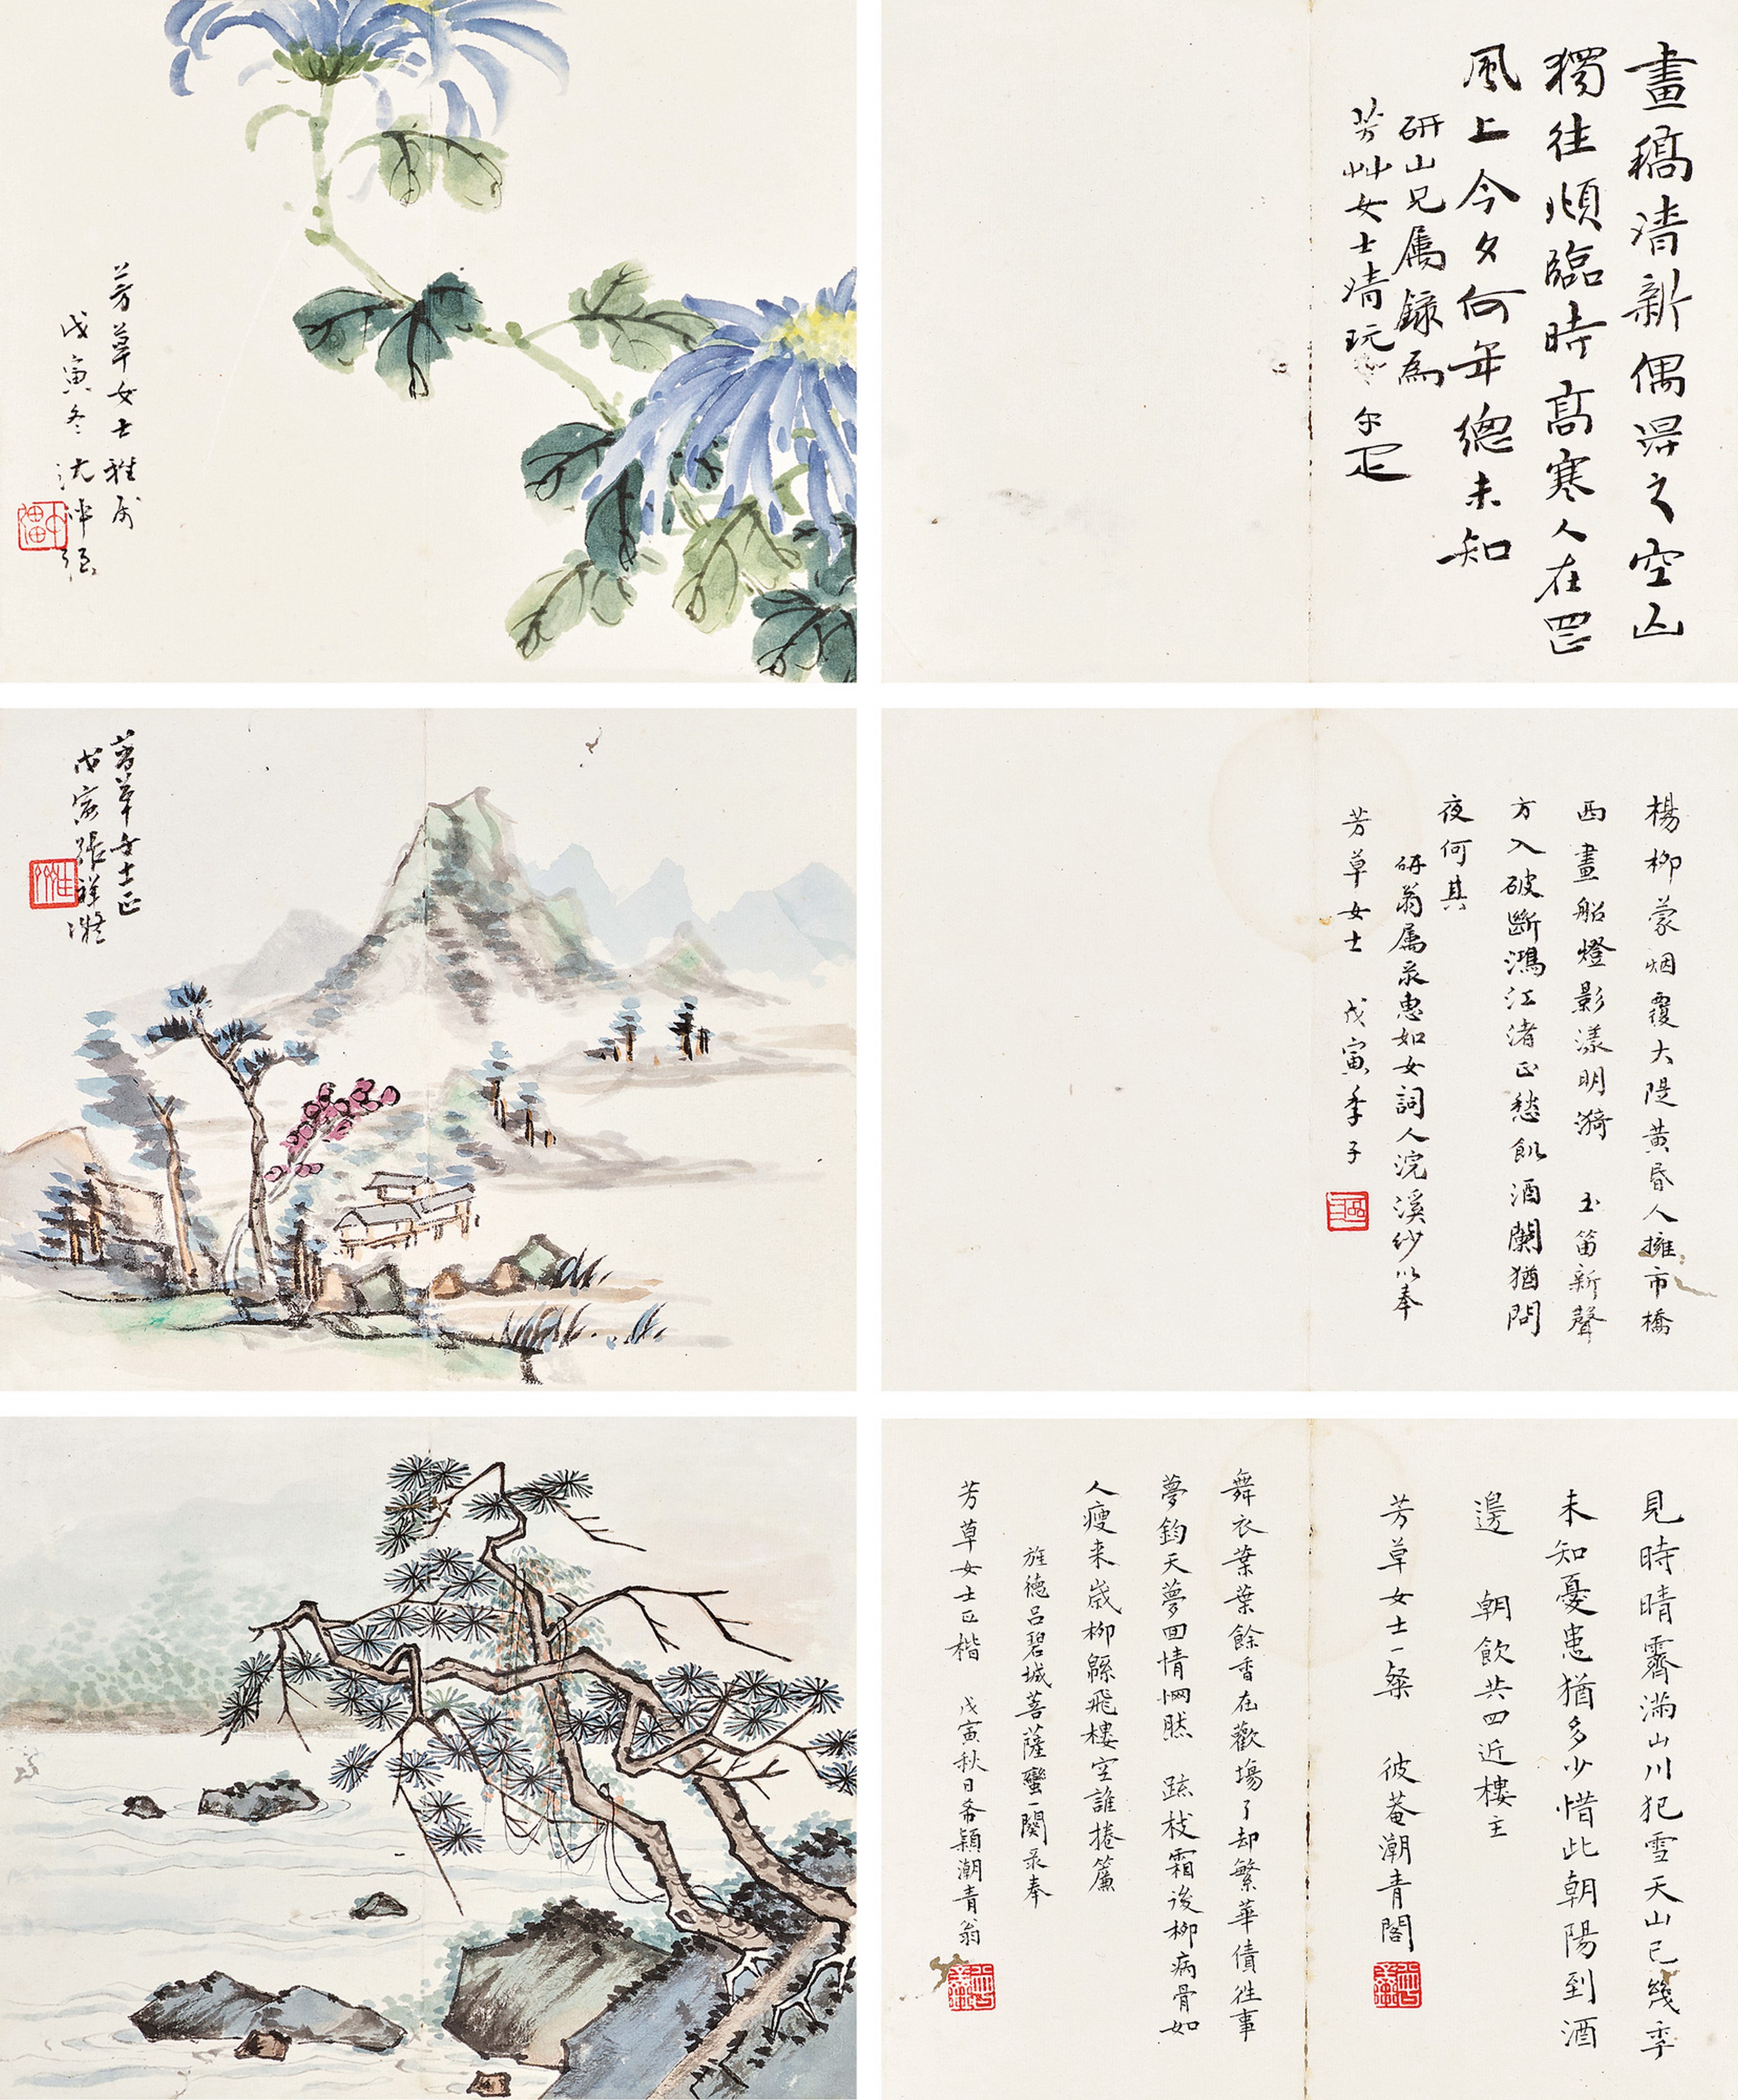 芳草女士雅属
戊寅冬沈仲强
畫稿清新偶得之空山
獨往頫臨時高寒人在罡
風上今夕何年總未知
研山兄属録為
芳艸女士清玩 尔疋
芳草女士正
戊寅張祥凝
楊柳蒙烟覆大隄黄昏人擁市橋
西畫船燈影漾明漪 玉笛新聲
方入破斷鴻江渚正愁飢酒闌猶問
夜何其
研翁属彔惠如女詞人浣溪紗以奉
芳草女士 戊寅季子
見時晴霽滿山川犯雪天山已幾年
未知憂患猶多少惜此朝陽到酒
邊 朝飲共四近樓主
芳草女士一粲 彼菴潮青閣
舞衣葉葉餘香在歡場了却繁華債徃事
夢鈞天夢回情惘然 疏枝霜後柳病骨如
人瘦来歲柳緜飛樓空誰捲簾
旌德吕碧城菩薩蠻一闋彔奉
芳草女士正楷 戊寅秋日希穎潮青翁